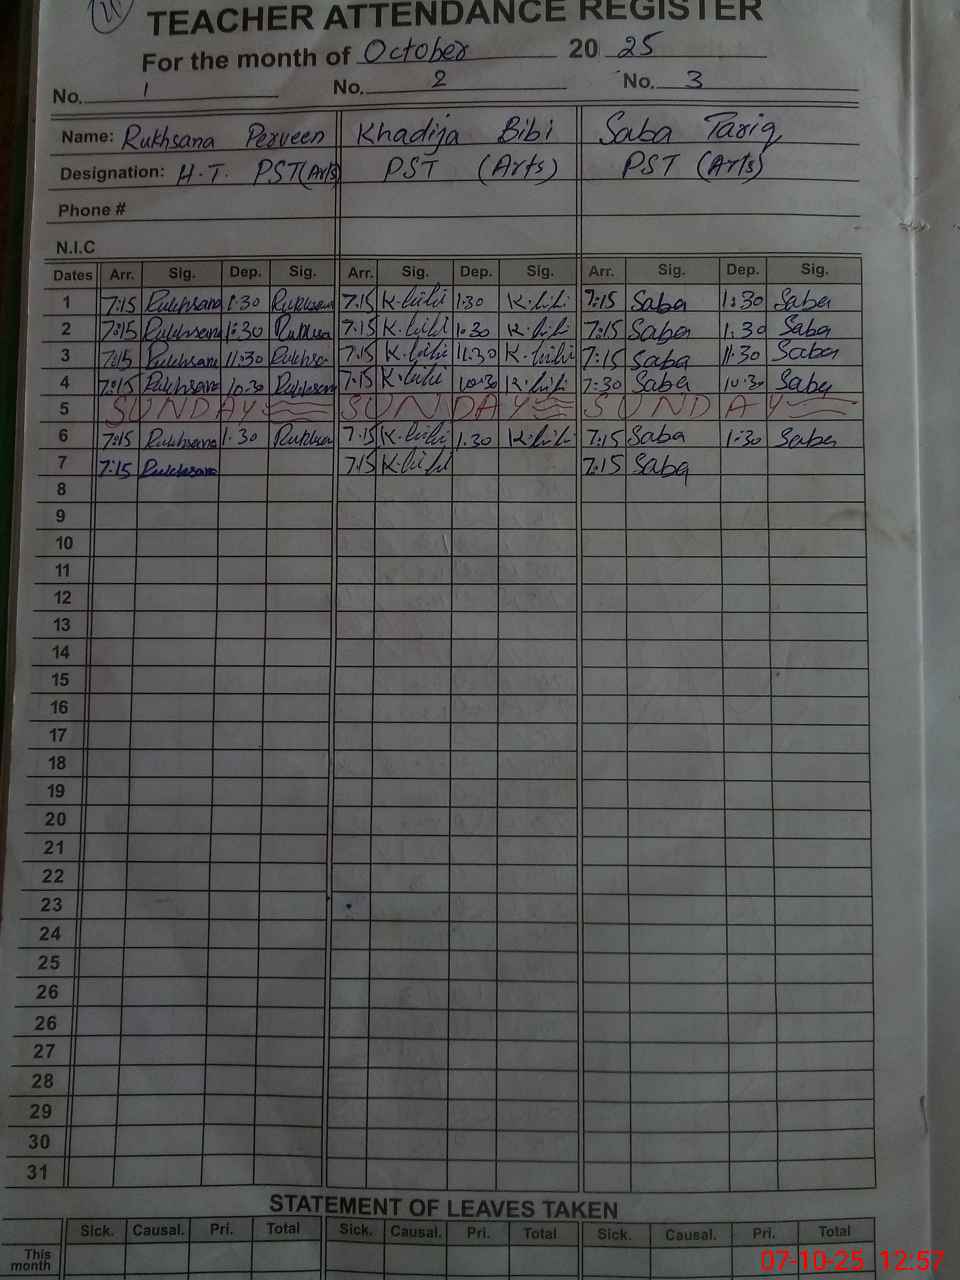 TEACHER ATTENDANCE REGISTER
For the month of October 20 25
No. 1 No. 2 No. 3
Name: Rukhsana Perveen Khadija Bibi Saba Tariq
Designation: H.T. PST(Arts) PST (Arts) PST (Arts)
Phone #
N.I.C
Dates Arr. Sig. Dep. Sig. Arr. Sig. Dep. Sig. Arr. Sig. Dep. Sig.
1 7:15 Rukhsana 1:30 Rukhsana 7:15 K.bibi 1:30 K.bibi 7:15 Saba 1:30 Saba
2 7:15 Rukhsana 1:30 Rukhsa 7:15 K.bibi 1:30 K.bibi 7:15 Saba 1:30 Saba
3 7:15 Rukhsana 11:30 Rukhsa 7:15 K.bibi 11:30 K.bibi 7:15 Saba 11:30 Saba
4 7:15 Rukhsana 10:30 Rukhsana 7:15 K.bibi 10:30 K.bibi 7:30 Saba 10:30 Saba
5 SUNDAY SUNDAY SUNDAY
6 7:15 Rukhsana 1:30 Rukhsana 7:15 K.bibi 1:30 K.bibi 7:15 Saba 1:30 Saba
7 7:15 Rukhsana 7:15 K.bibi 7:15 Saba
8
9
10
11
12
13
14
15
16
17
18
19
20
21
22
23
24
25
26
26
27
28
29
30
31
STATEMENT OF LEAVES TAKEN
Sick. Causal. Pri. Total Sick. Causal. Pri. Total Sick. Causal. Pri. Total
This month
07-10-25 12:57